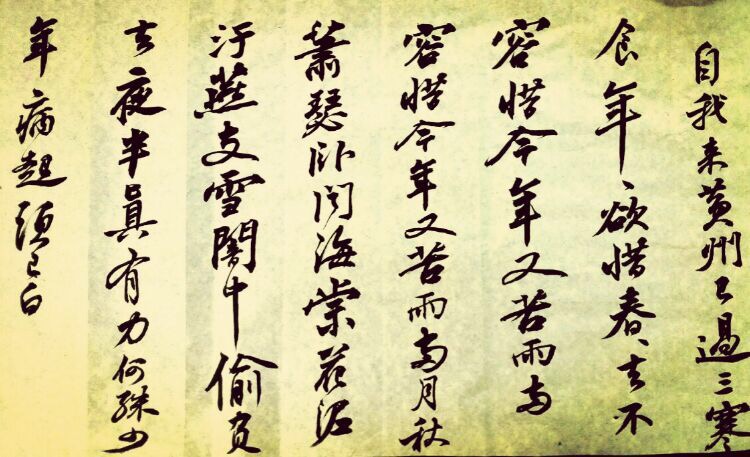 自我来黄州已過三寒
食年、欲惜春、去不
容惜今年又苦雨两
容惜今年又苦雨两月秋
蕭瑟卧闻海棠花泥
汙燕支雪闇中偷負
去夜半真有力何殊少
年病起须已白